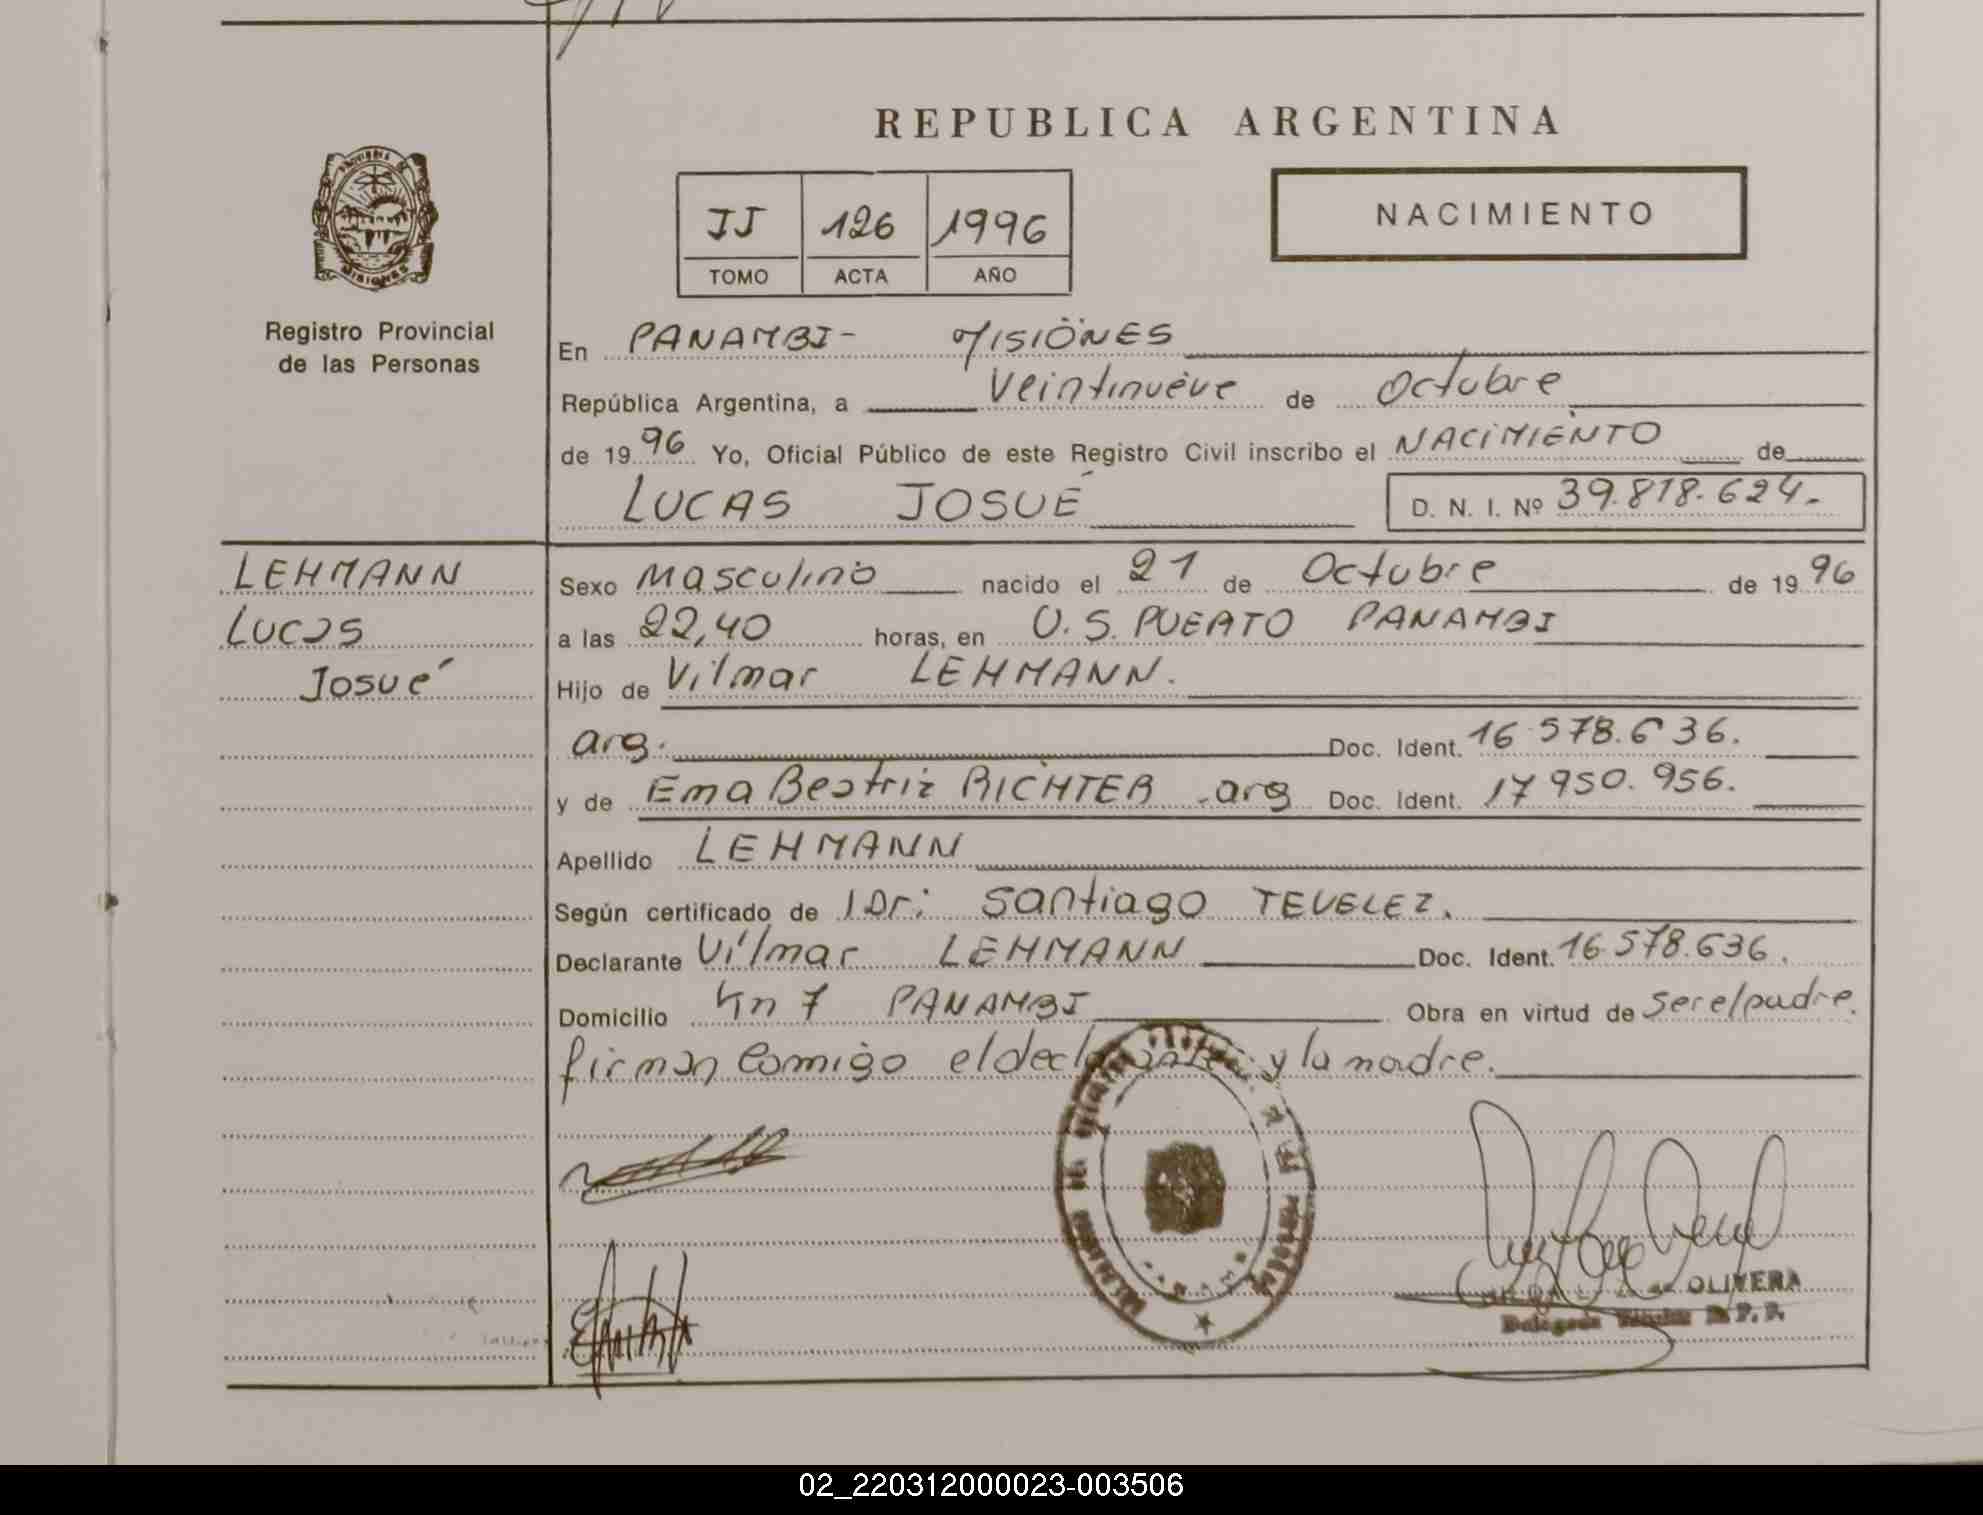 REPUBLICA ARGENTINA
JJ 126 1996
TOMO ACTA AÑO
NACIMIENTO
MISIONES
Registro Provincial
de las Personas
En PANAMBI- MISIÖNES
República Argentina, a Veintinueve de Octubre
de 19 96 Yo, Oficial Público de este Registro Civil inscribo el NACIMIENTO de
LUCAS JOSUÉ D. N. I. Nº 39.818.624.-
LEHMANN
Lucas
Josué
Sexo Masculino nacido el 21 de Octubre de 19 96
a las 22,40 horas, en U.S. PUERTO PANAMBI
Hijo de Vilmar LEHMANN.
arg. Doc. Ident. 16.578.636.
y de Ema Beatriz RICHTER .arg Doc. Ident. 17 950.956.
Apellido LEHMANN
Según certificado de Dr: Santiago TEVELEZ.
Declarante Vilmar LEHMANN Doc. Ident. 16.578.636.
Domicilio Km 7 PANAMBI Obra en virtud de ser el padre.
firman Comigo el declarante y la madre.
de OLIVERA
Delegada Titular R.P.P.
02_220312000023-003506